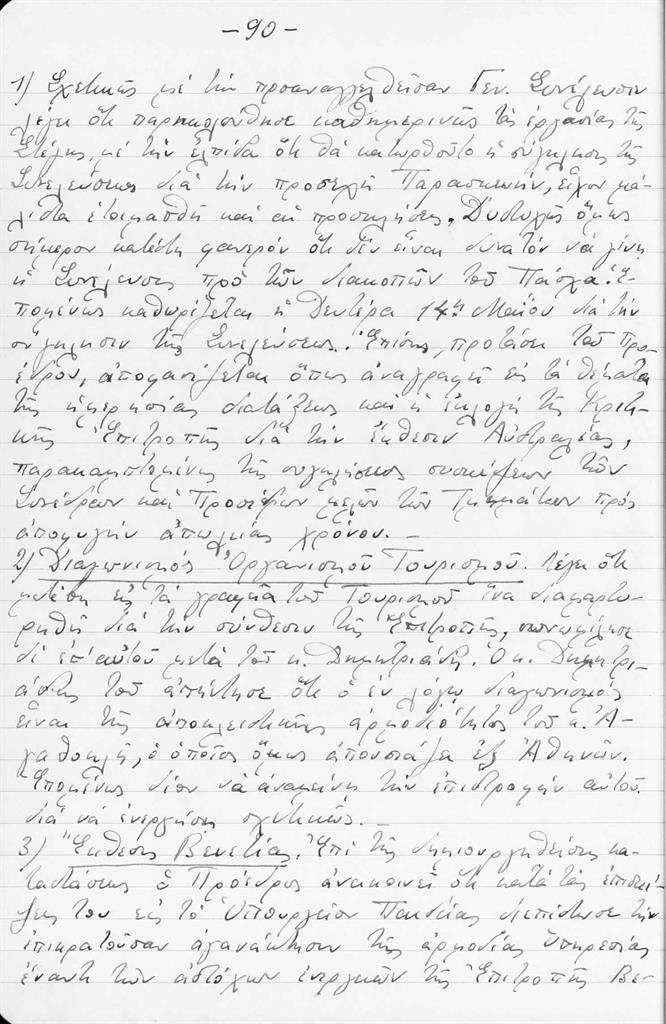 -90-
1) Σχετικῶς μέ τήν προαναγγελθεῖσαν Γεν. Συνέλευσιν
λέγει ὅτι παρηκολούθησε καθημερινῶς τάς ἐργασίας τῆς
Στέγης, μέ τήν ἐλπίδα ὅτι θά κατωρθοῦτο ἡ σύγκλησις τῆς
Συνελεύσεως διά τήν προσεχῆ Παρασκευήν, εἶχον μά-
λιστα ἑτοιμασθῆ καί αἱ προσκλήσεις. Δυστυχῶς ὅμως
σήμερον κατέστη φανερόν ὅτι δέν εἶναι δυνατόν νά γίνῃ
ἡ Συνέλευσις πρό τῶν διακοπῶν τοῦ Πάσχα. Ἑ-
πομένως καθωρίζεται ἡ Δευτέρα 14η Μαΐου διά τήν
σύγκλησιν τῆς Συνελεύσεως. Ἐπίσης, προτάσει τοῦ Προ-
έδρου, ἀποφασίζεται ὅπως ἀναγραφῇ εἰς τά θέματα
τῆς ἡμερησίας διατάξεως καί ἡ ἐκλογή τῆς Κριτι-
κῆς Ἐπιτροπῆς διά τήν ἔκθεσιν Αὐστραλίας,
παρακαμπτομένης τῆς συγκλήσεως συσκέψεων τῶν
Συνέδρων καί Προσέδρων μελῶν τῶν Τμημάτων πρός
ἀποφυγήν ἀπωλείας χρόνου. —
2) Διαγωνισμός Ὀργανισμοῦ Τουρισμοῦ. Λέγει ὅτι
μετέβη εἰς τά γραφεῖα τοῦ Τουρισμοῦ ἵνα διαμαρτυ-
ρηθῇ διά τήν σύνθεσιν τῆς Ἐπιτροπῆς, συνωμίλησε
δέ ἐπ' αὐτοῦ μετά τοῦ κ. Δημητριάδη. Ὁ κ. Δημητρι-
άδης τοῦ ἀπήντησε ὅτι ὁ ἐν λόγῳ διαγωνισμός
εἶναι τῆς ἀποκλειστικῆς ἁρμοδιότητος τοῦ κ. Ἀ-
γαθοκλῆ, ὁ ὁποῖος ὅμως ἀπουσιάζει ἐξ Ἀθηνῶν.
Ἑπομένως δέον νά ἀναμείνῃ τήν ἐπιστροφήν αὐτοῦ
διά νά ἐνεργήσῃ σχετικῶς. —
3) Ἔκθεσις Βενετίας. Ἐπί τῆς δημιουργηθείσης κα-
ταστάσεως ὁ Πρόεδρος ἀνακοινεῖ ὅτι κατά τάς ἐπισκέ-
ψεις του εἰς τό Ὑπουργεῖον Παιδείας διεπίστωσε τήν
ἐπικρατοῦσαν ἀγανάκτησιν τῆς ἁρμοδίας Ὑπηρεσίας
ἔναντι τῶν ἀστόχων ἐνεργειῶν τῆς Ἐπιτροπῆς Βε-